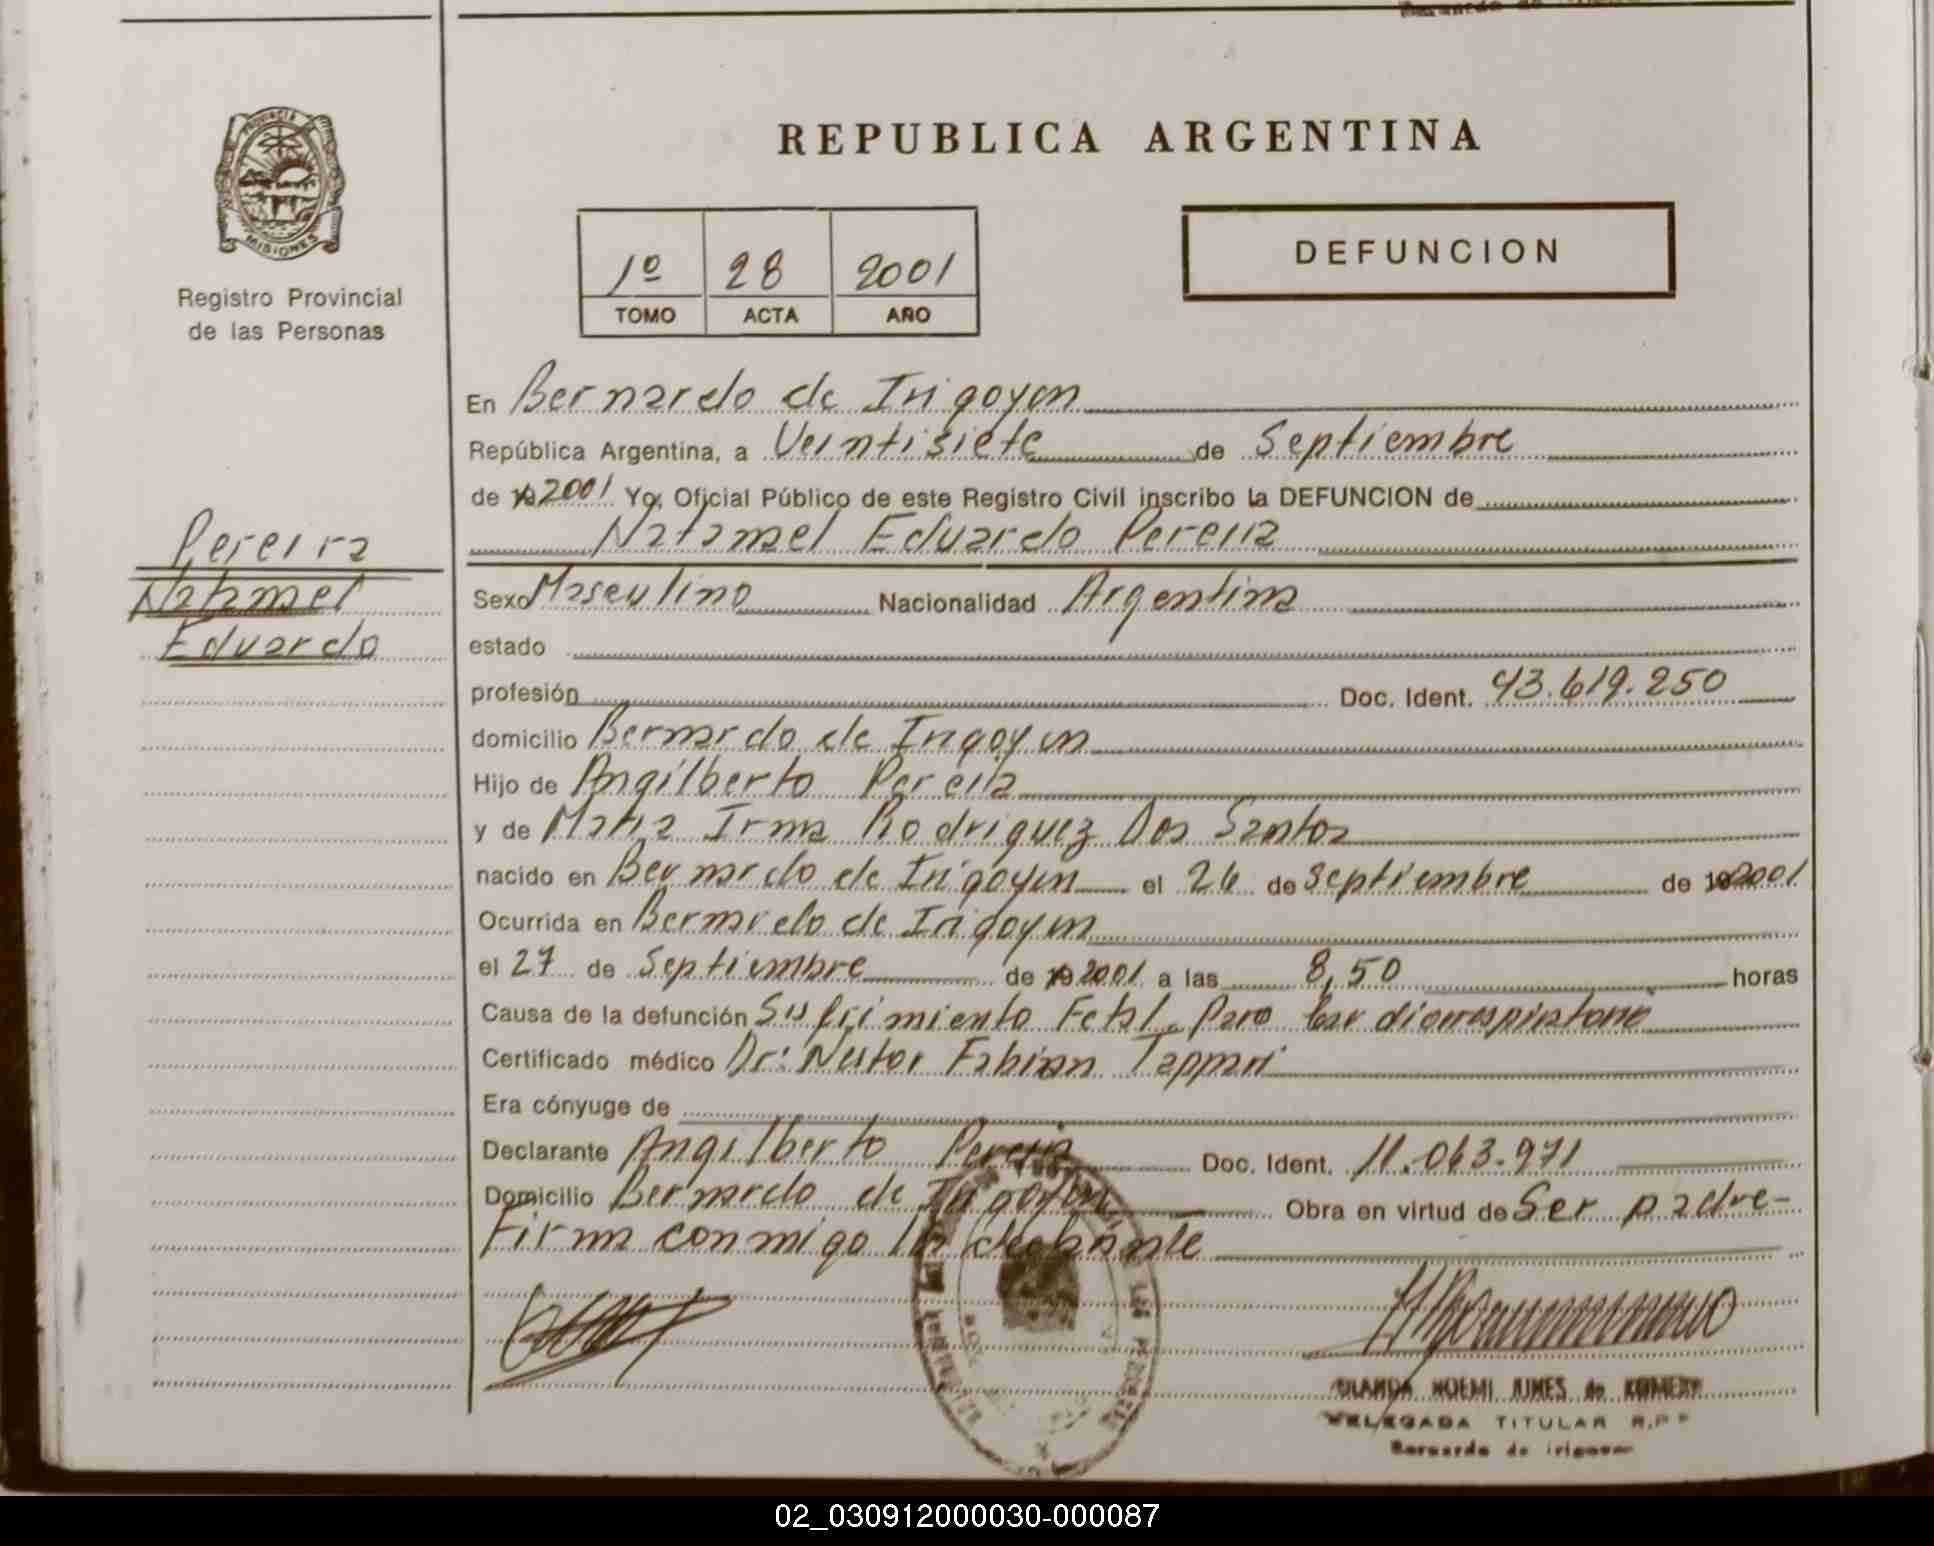 REPUBLICA ARGENTINA
PROVINCIA DE
MISIONES
Registro Provincial
de las Personas
1º 28 2001
TOMO ACTA AÑO
DEFUNCION
En Bernardo de Irigoyen
República Argentina, a Veintisiete de Septiembre
de 19 2001 Yo, Oficial Público de este Registro Civil inscribo la DEFUNCION de
Natanael Eduardo Pereira
Pereira
Natanael
Eduardo
Sexo Masculino Nacionalidad Argentina
estado
profesión Doc. Ident. 43.619.250
domicilio Bernardo de Irigoyen
Hijo de Angilberto Pereira
y de Maria Irma Rodriguez Dos Santos
nacido en Bernardo de Irigoyen el 26 de Septiembre de 19 2001
Ocurrida en Bernardo de Irigoyen
el 27 de Septiembre de 19 2001 a las 8,50 horas
Causa de la defunción Sufrimiento Fetal. Paro Cardiorrespiratorio
Certificado médico Dr: Nestor Fabian Tappari
Era cónyuge de
Declarante Angilberto Pereira Doc. Ident. 11.063.971
Domicilio Bernardo de Irigoyen Obra en virtud de Ser padre-
Firma conmigo la declarante
NOEMI de
DELEGADA TITULAR R.P.P
Bernardo de Irigoyen
02_030912000030-000087